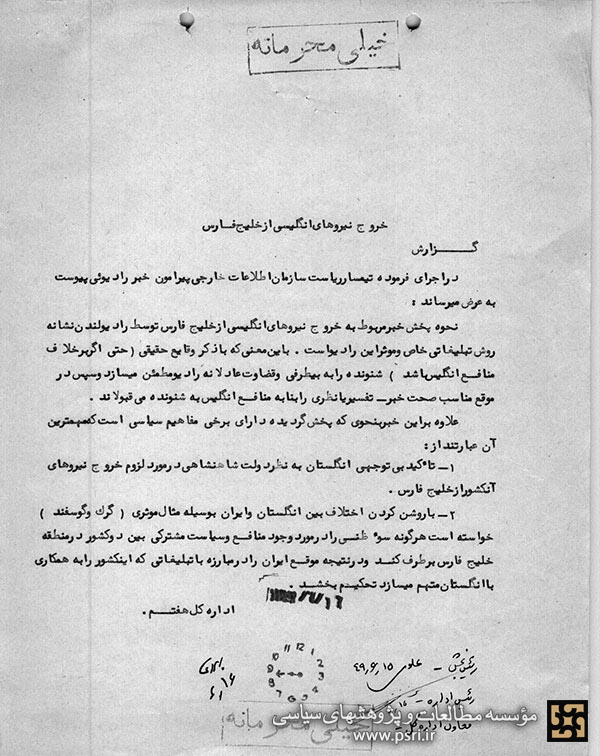 خیلی محرمانه
خروج نیروهای انگلیسی از خلیج فارس
گــزارش
در اجرای فرموده تیمسار ریاست سازمان اطلاعات خارجی پیرامون خبر رادیوئی پیوست
به عرض میرساند :
نحوه پخش خبر مربوط به خروج نیروهای انگلیسی از خلیج فارس توسط رادیو لندن نشانه
روش تبلیغاتی خاص و موثر این رادیو است . باین معنی که با ذکر وقایع حقیقی ( حتی اگر بر خلاف
منافع انگلیس باشد ) شنونده را به بیطرفی و قضاوت عادلانه رادیو مطمئن میسازد و سپس در
موقع مناسب صحت خبر ــ تفسیر یا نظری را بنا به منافع انگلیس به شنونده می قبولاند .
علاوه براین خبر بنحوی که پخش گردیده دارای برخی مفاهیم سیاسی است که مهمترین
آن عبارتند از :
۱ــ تاکید بی توجهی انگلستان به نظر دولت شاهنشاهی در مورد لزوم خروج نیروهای
آنکشور از خلیج فارس .
۲ــ با روشن کردن اختلاف بین انگلستان و ایران بوسیله مثال موثری ( گرگ و گوسفند )
خواسته است هرگونه سوء ظنی را در مورد وجود منافع و سیاست مشترکی بین دو کشور در منطقه
خلیج فارس برطرف کند و در نتیجه موقع ایران را در مبارزه با تبلیغاتی که اینکشور را به همکاری
با انگلستان متهم میسازد تحکیم بخشد .
اداره کل هفتم .
رئیس بخش ــ علوی ۴۹٫۶٫۱۵
12 1 2 3 4 5 6 7 8 9 10 11
رئیس اداره ــ
معاون اداره کل
خیلی محرمانه
مؤسسه مطالعات و پژوهشهای سیاسی
www.psri.ir